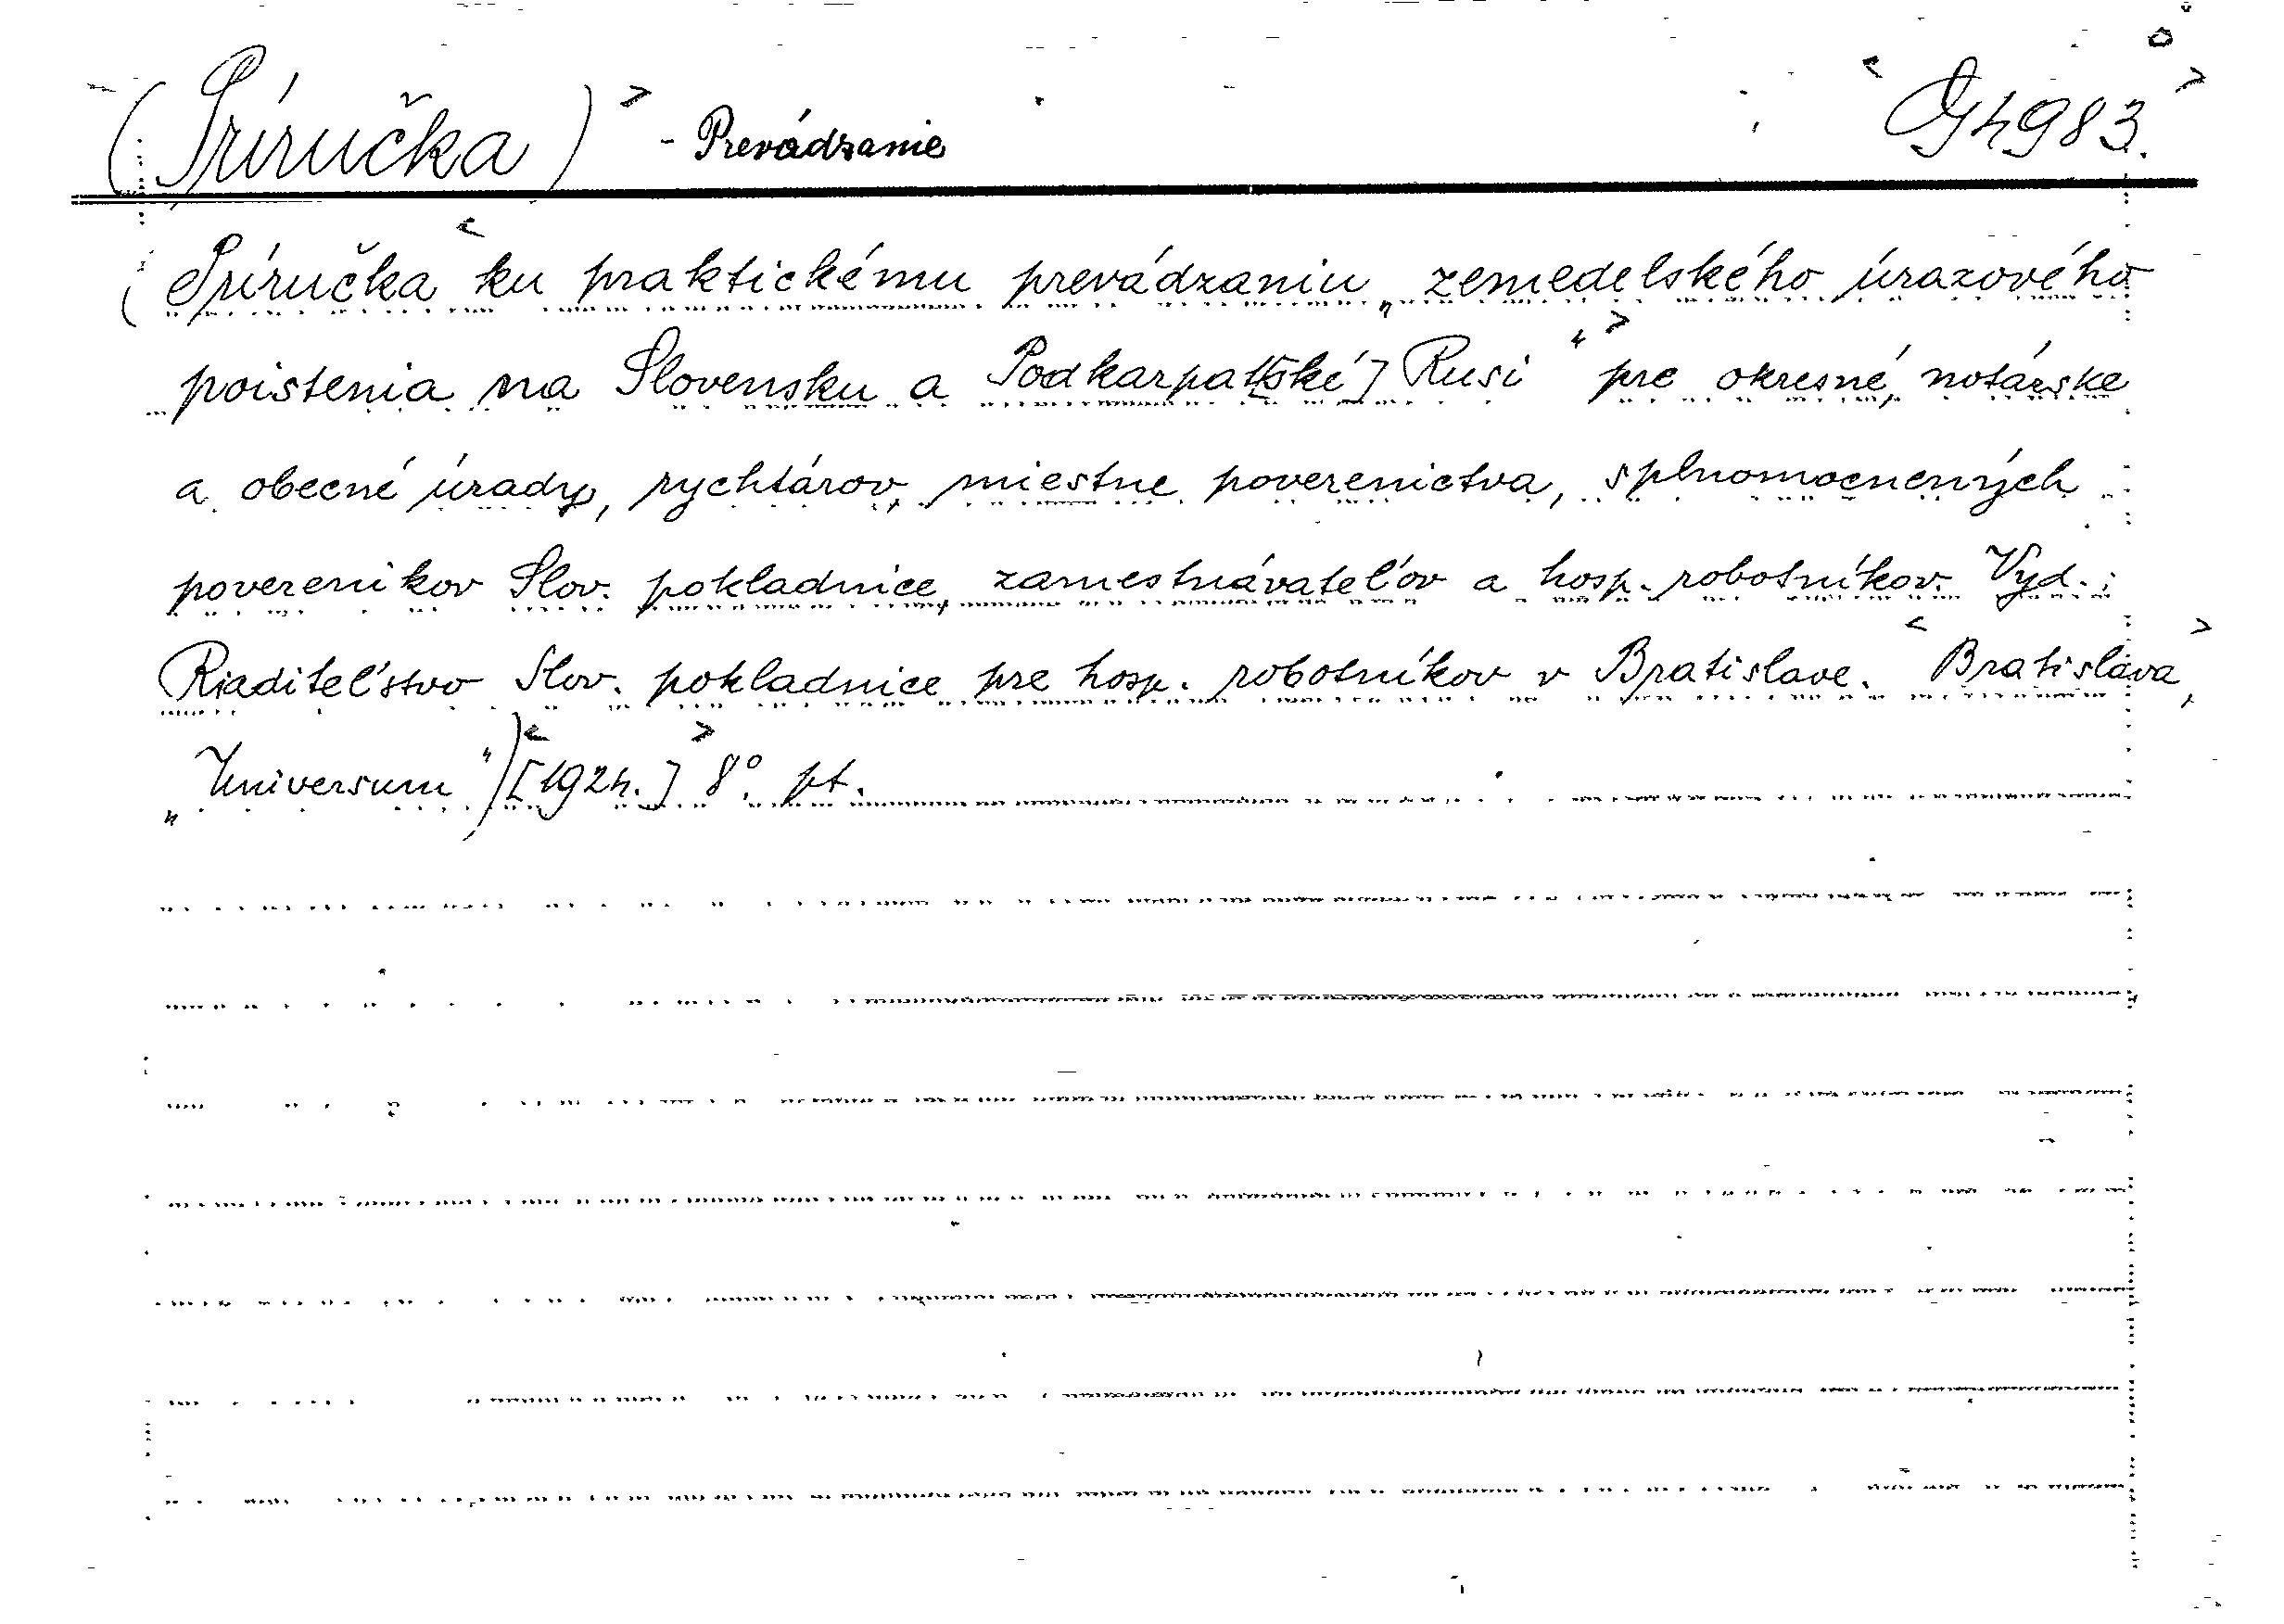 (Príručka) - Prevádzanie G 4983.
(Príručka ku praktickému prevádzaniu „zemedelského úrazového
poistenia na Slovensku a Podkarpatské] Rusi“ pre okresné, notárske
a obecné úrady, rychtárov, miestne poverenictva, splnomocnených
povereníkov Slov. pokladnice, zamestnávateľov a hosp. robotníkov. Vyd.:
Riaditeľstvo Slov. pokladnice pre hosp. robotníkov v Bratislave. Bratislava,
„Universum“) [1924.] 8°. pt.